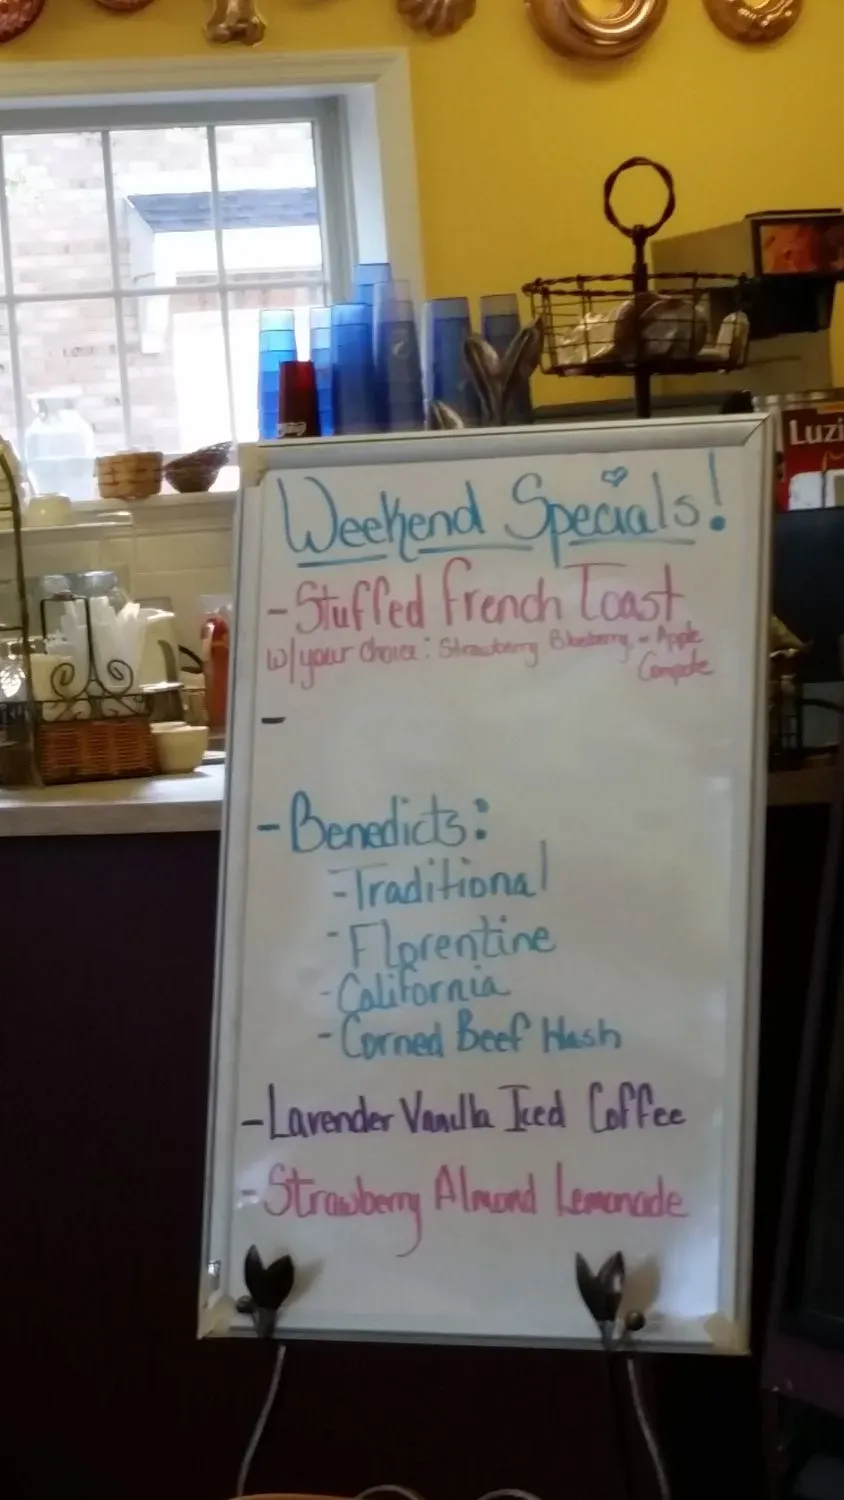 Weekend Specials!
- Stuffed French Toast
w/your choice: Strawberry Blueberry, - Apple
Compote
-
- Benedicts:
- Traditional
- Florentine
- California
- Corned Beef Hash
- Lavender Vanilla Iced Coffee
- Strawberry Almond Lemonade
Luzi